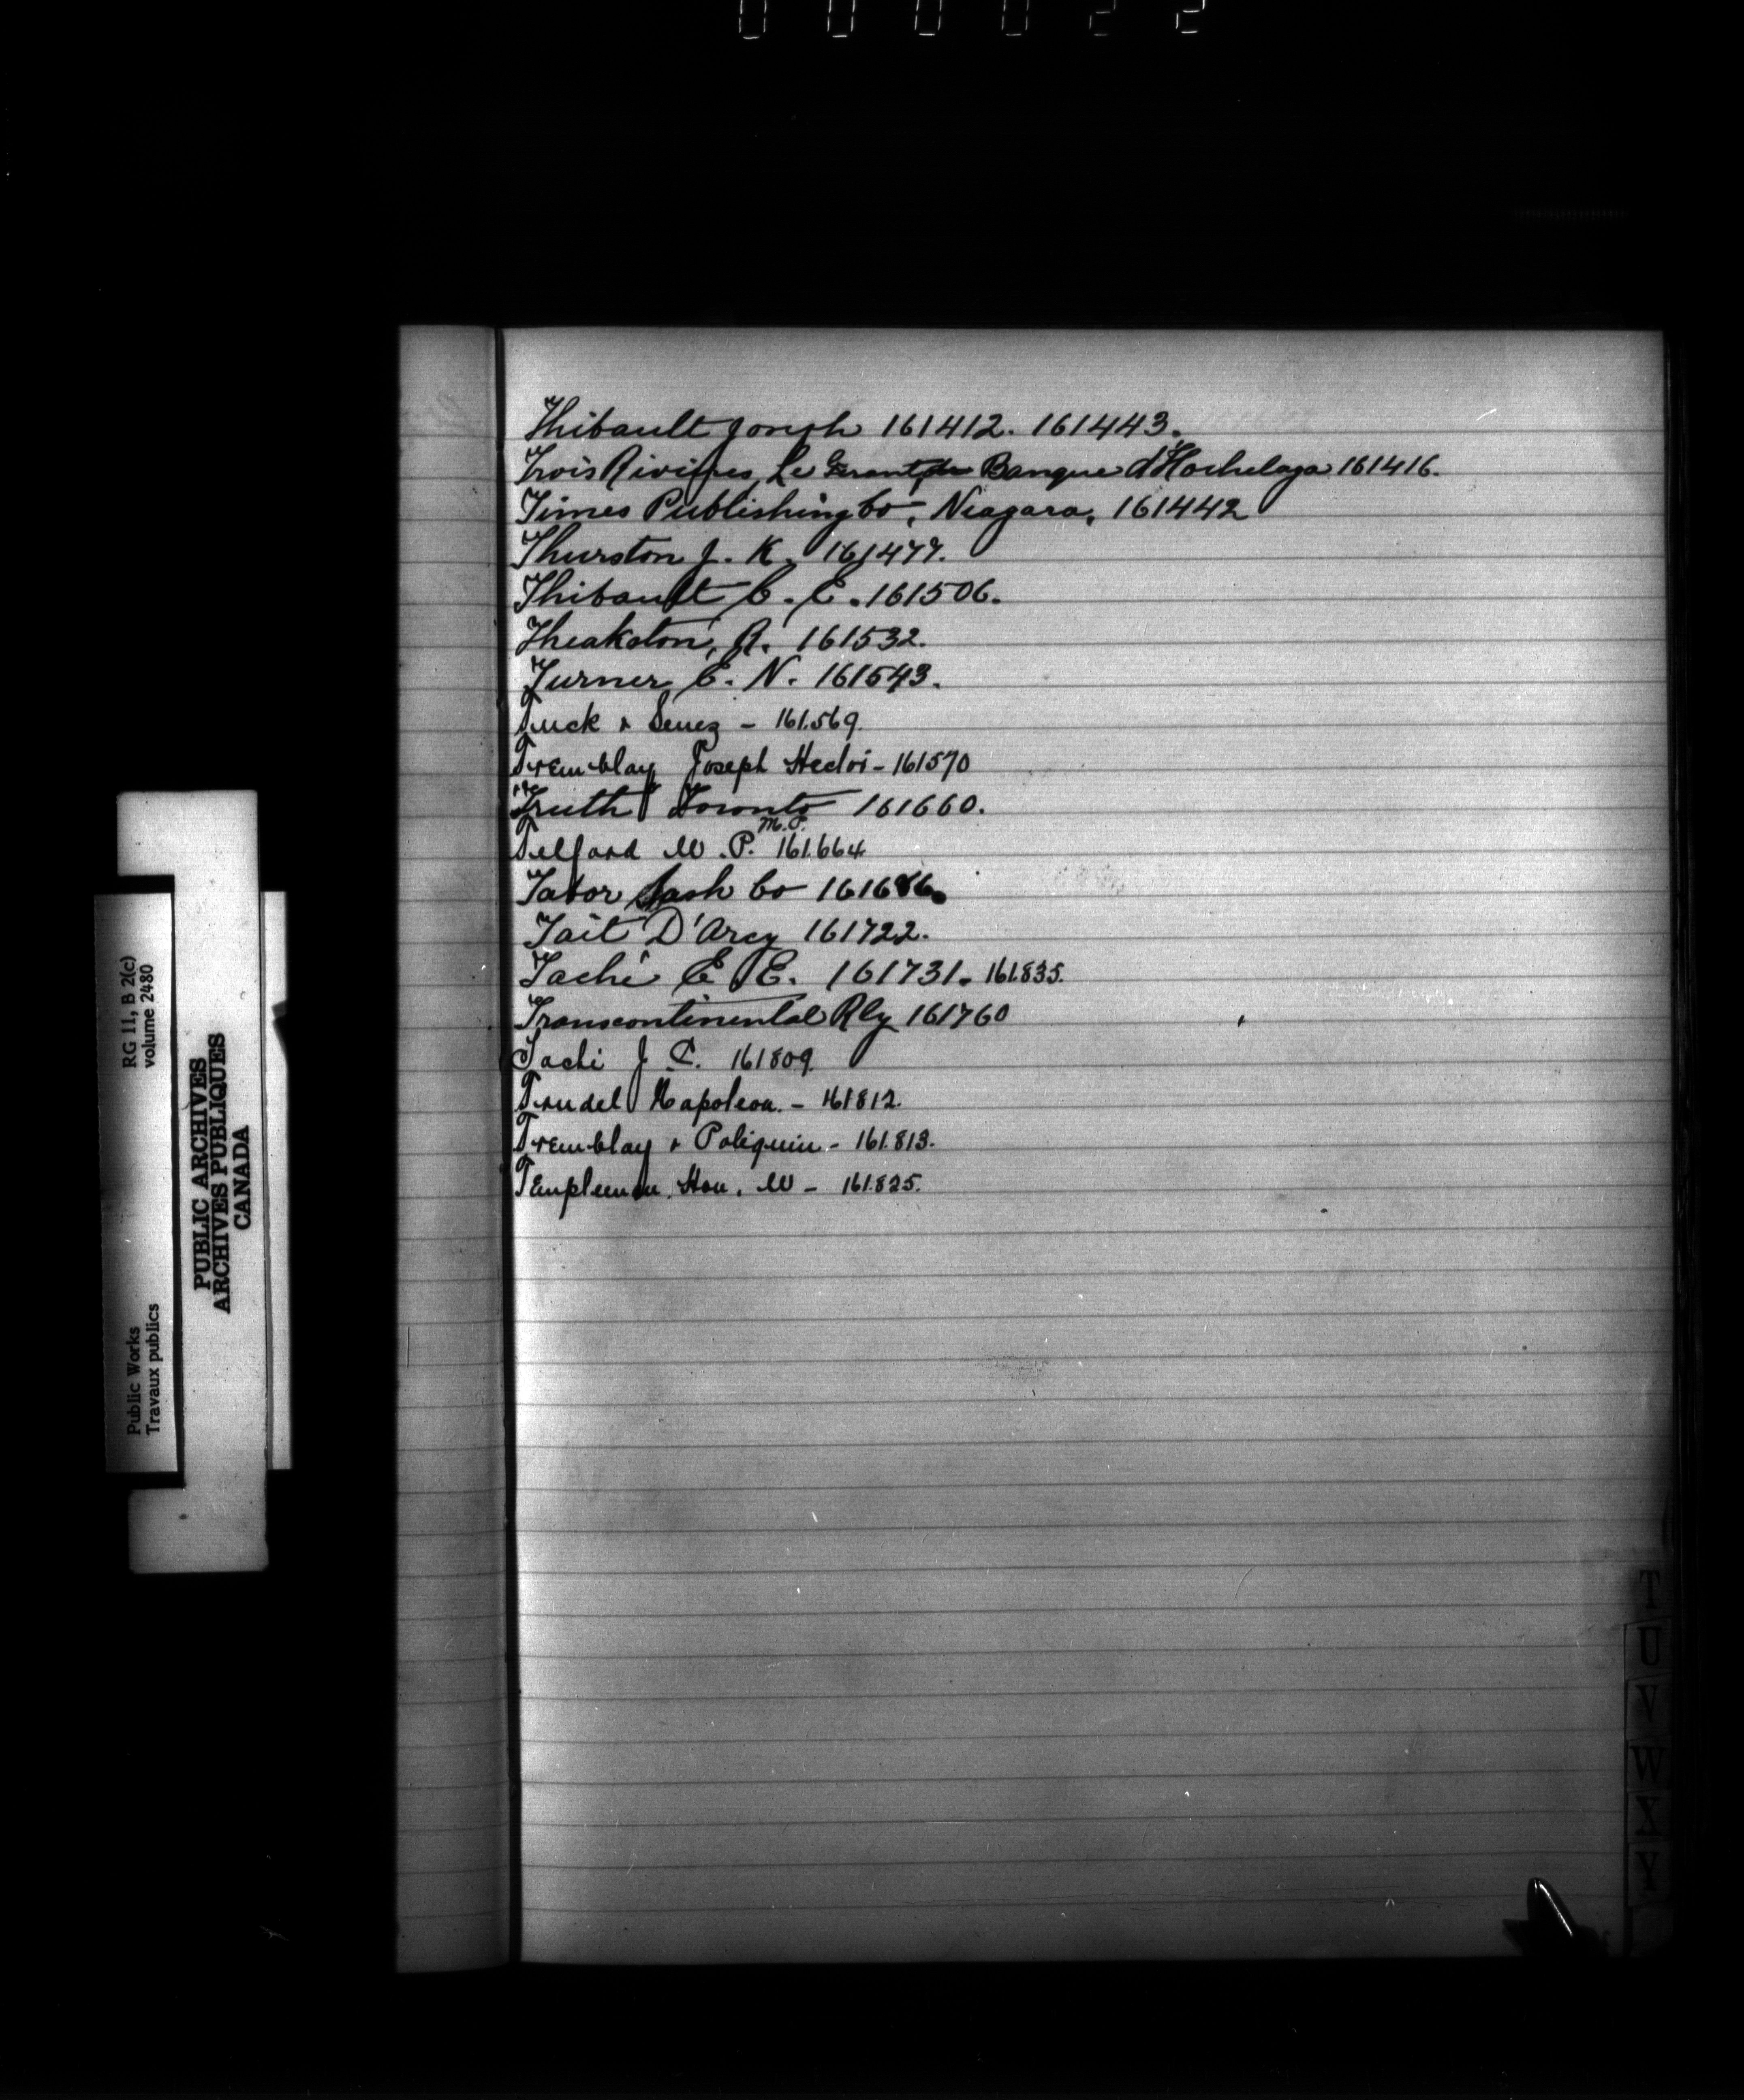 000022
Thibault Joseph 161412. 161443.
Trois Rivières, Le Gerant de Banque d'Hochelaga 161416.
Times Publishing Co, Niagara, 161442
Thurston J. K. 161477.
Thibault C. E. 161506.
Theakston, R. 161532.
Turner, C. N. 161543.
Tuck & Senez - 161.569.
Tremblay Joseph Hedoi - 161570
Truth Toronto 161660.
Telford W. P. M.P. 161.664
Tabor Sash Co 161686.
Tait D'Arcy 161722.
Taché E E. 161731. 161.835.
Transcontinental Rly 161760
Taché J. C. 161809.
Trudel Napoleon. - 161812.
Tremblay & Poliquin - 161.813.
Templeman, Hon. W - 161.825.
RG 11, B 2(c)
volume 2480
Public Works
Travaux publics
PUBLIC ARCHIVES
ARCHIVES PUBLIQUES
CANADA
T
U
V
W
X
Y